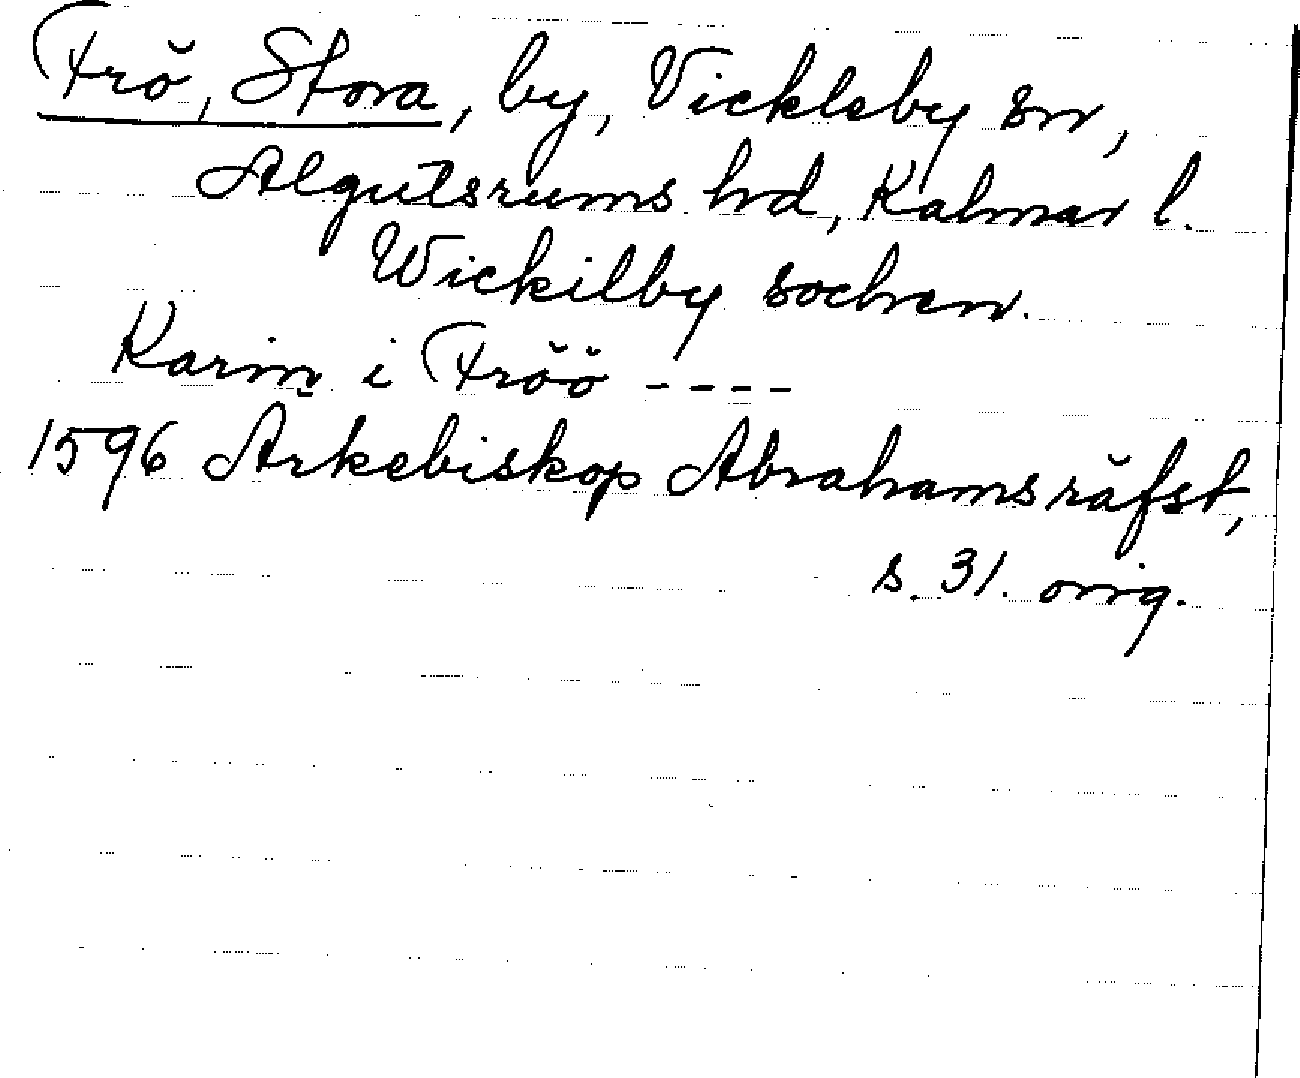 Frö, Stora, by, Vickleby sn,
Algutsrums hd, Kalmar l.
Wickilby sochen.
Karin i Fröö ----
1596 Ärkebiskop Abrahams räfst,
s. 31. orig.